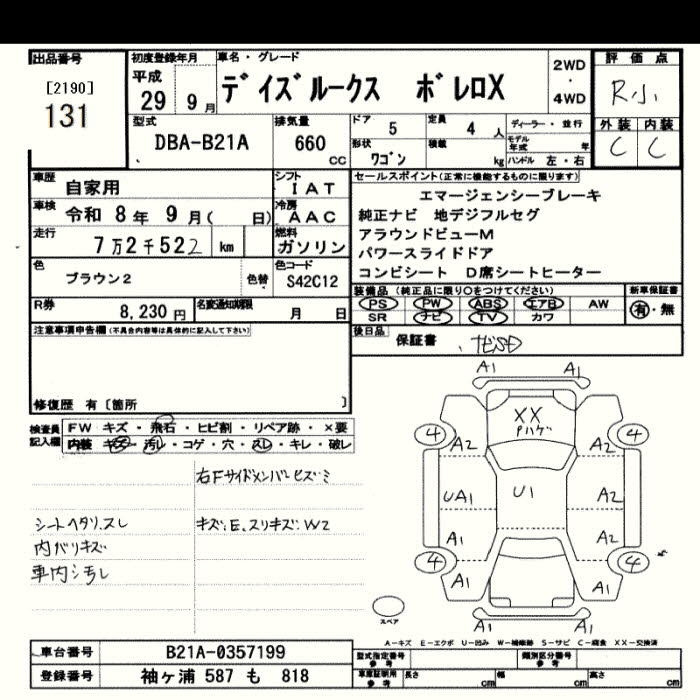 出品番号
[2190]
131
初度登録年月
平成
29 9月
車名・グレード
デイズルークス ボレロX
2WD
・
4WD
評価点
R小
外装 内装
C C
型式
DBA-B21A
排気量
660
CC
ドア
5
定員
4 人
形状
ワゴン
積載
kg
ディーラー・並行
モデル年式 年
ハンドル 左・右
車歴
自家用
シフト
IAT
車検
令和 8年 9月( 日)
冷房
AAC
走行
7万2千522 km
燃料
ガソリン
色
ブラウン2
色替
色コード
S42C12
R券
8,230 円
名変通知期限
月 日
セールスポイント(正常に機能するものに限ります)
エマージェンシーブレーキ
純正ナビ 地デジフルセグ
アラウンドビューM
パワースライドドア
コンビシート D席シートヒーター
装備品(純正品に限り〇をつけてください)
新車保証書
PS PW ABS エアB AW
有・無
SR ナビ TV カワ
後日品
保証書
注意事項申告欄(不具合内容等は具体的に記入して下さい)
修復歴 有〔箇所 〕
検査員記入欄
FW キズ・飛石・ヒビ割・リペア跡・×要
内装 キズ・汚レ・コゲ・穴・スレ・キレ・破レ
右Fサイドメンバーヒズミ
シートヘタリ.スレ
キズ.E.スリキズ.W2
内バリキズ
車内シ汚レ
A1 A1
XX
Pハゲ
4 4
A2 A2
UA1 U1 A2
A1 A1
4 4
A1 A1
A1 A1
スペア
A-キズ E-エクボ U-凹み W-補修跡 S-サビ C-腐食 XX-交換済
車台番号
B21A-0357199
登録番号
袖ヶ浦 587 も 818
型式指定番号
参考
類別区分番号
参考
車庫証明用
参考
長さ cm
幅 cm
高さ cm